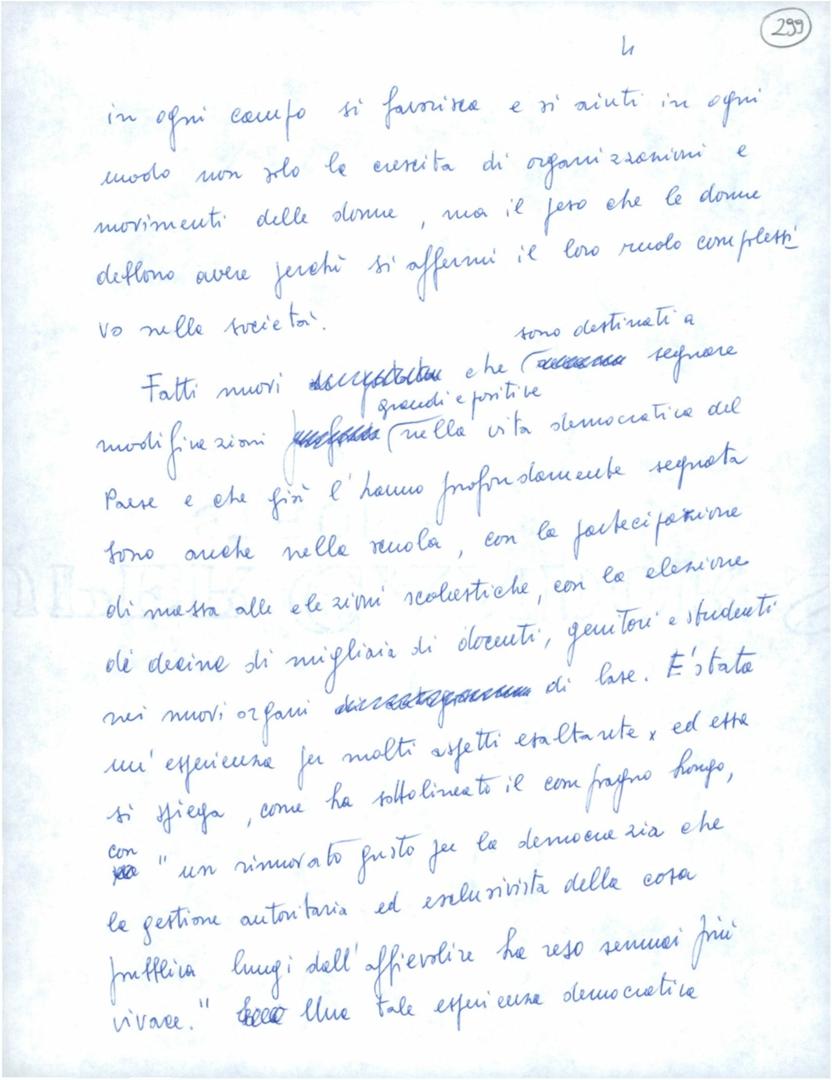 299
4
in ogni campo si favorisca e si aiuti in ogni
modo non solo la crescita di organizzazioni e
movimenti delle donne, ma il peso che le donne
debbono avere perchè si affermi il loro ruolo complessi
vo nella società.
sono destinati a
Fatti nuovi che segnare
grandi e positive
modificazioni nella vita democratica del
Paese e che già l'hanno profondamente segnata
sono anche nella scuola, con la partecipazione
di massa alle elezioni scolastiche, con la elezione
di decine di migliaia di docenti, genitori e studenti
nei nuovi organi di base. E' stata
un'esperienza per molti aspetti esaltante ed essa
si spiega, come ha sottolineato il compagno Longo,
con
"un rinnovato gusto per la democrazia che
la gestione autoritaria ed esclusivista della cosa
pubblica lungi dall'affievolire ha reso semmai più
vivace." Una tale esperienza democratica